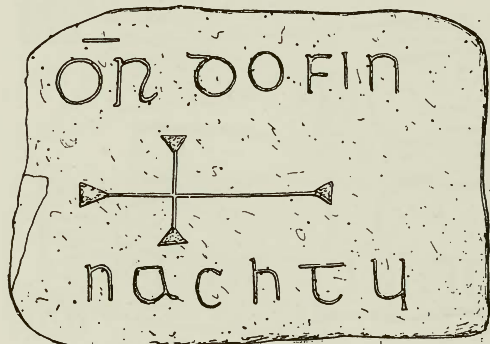 ōr do fin
nachtu